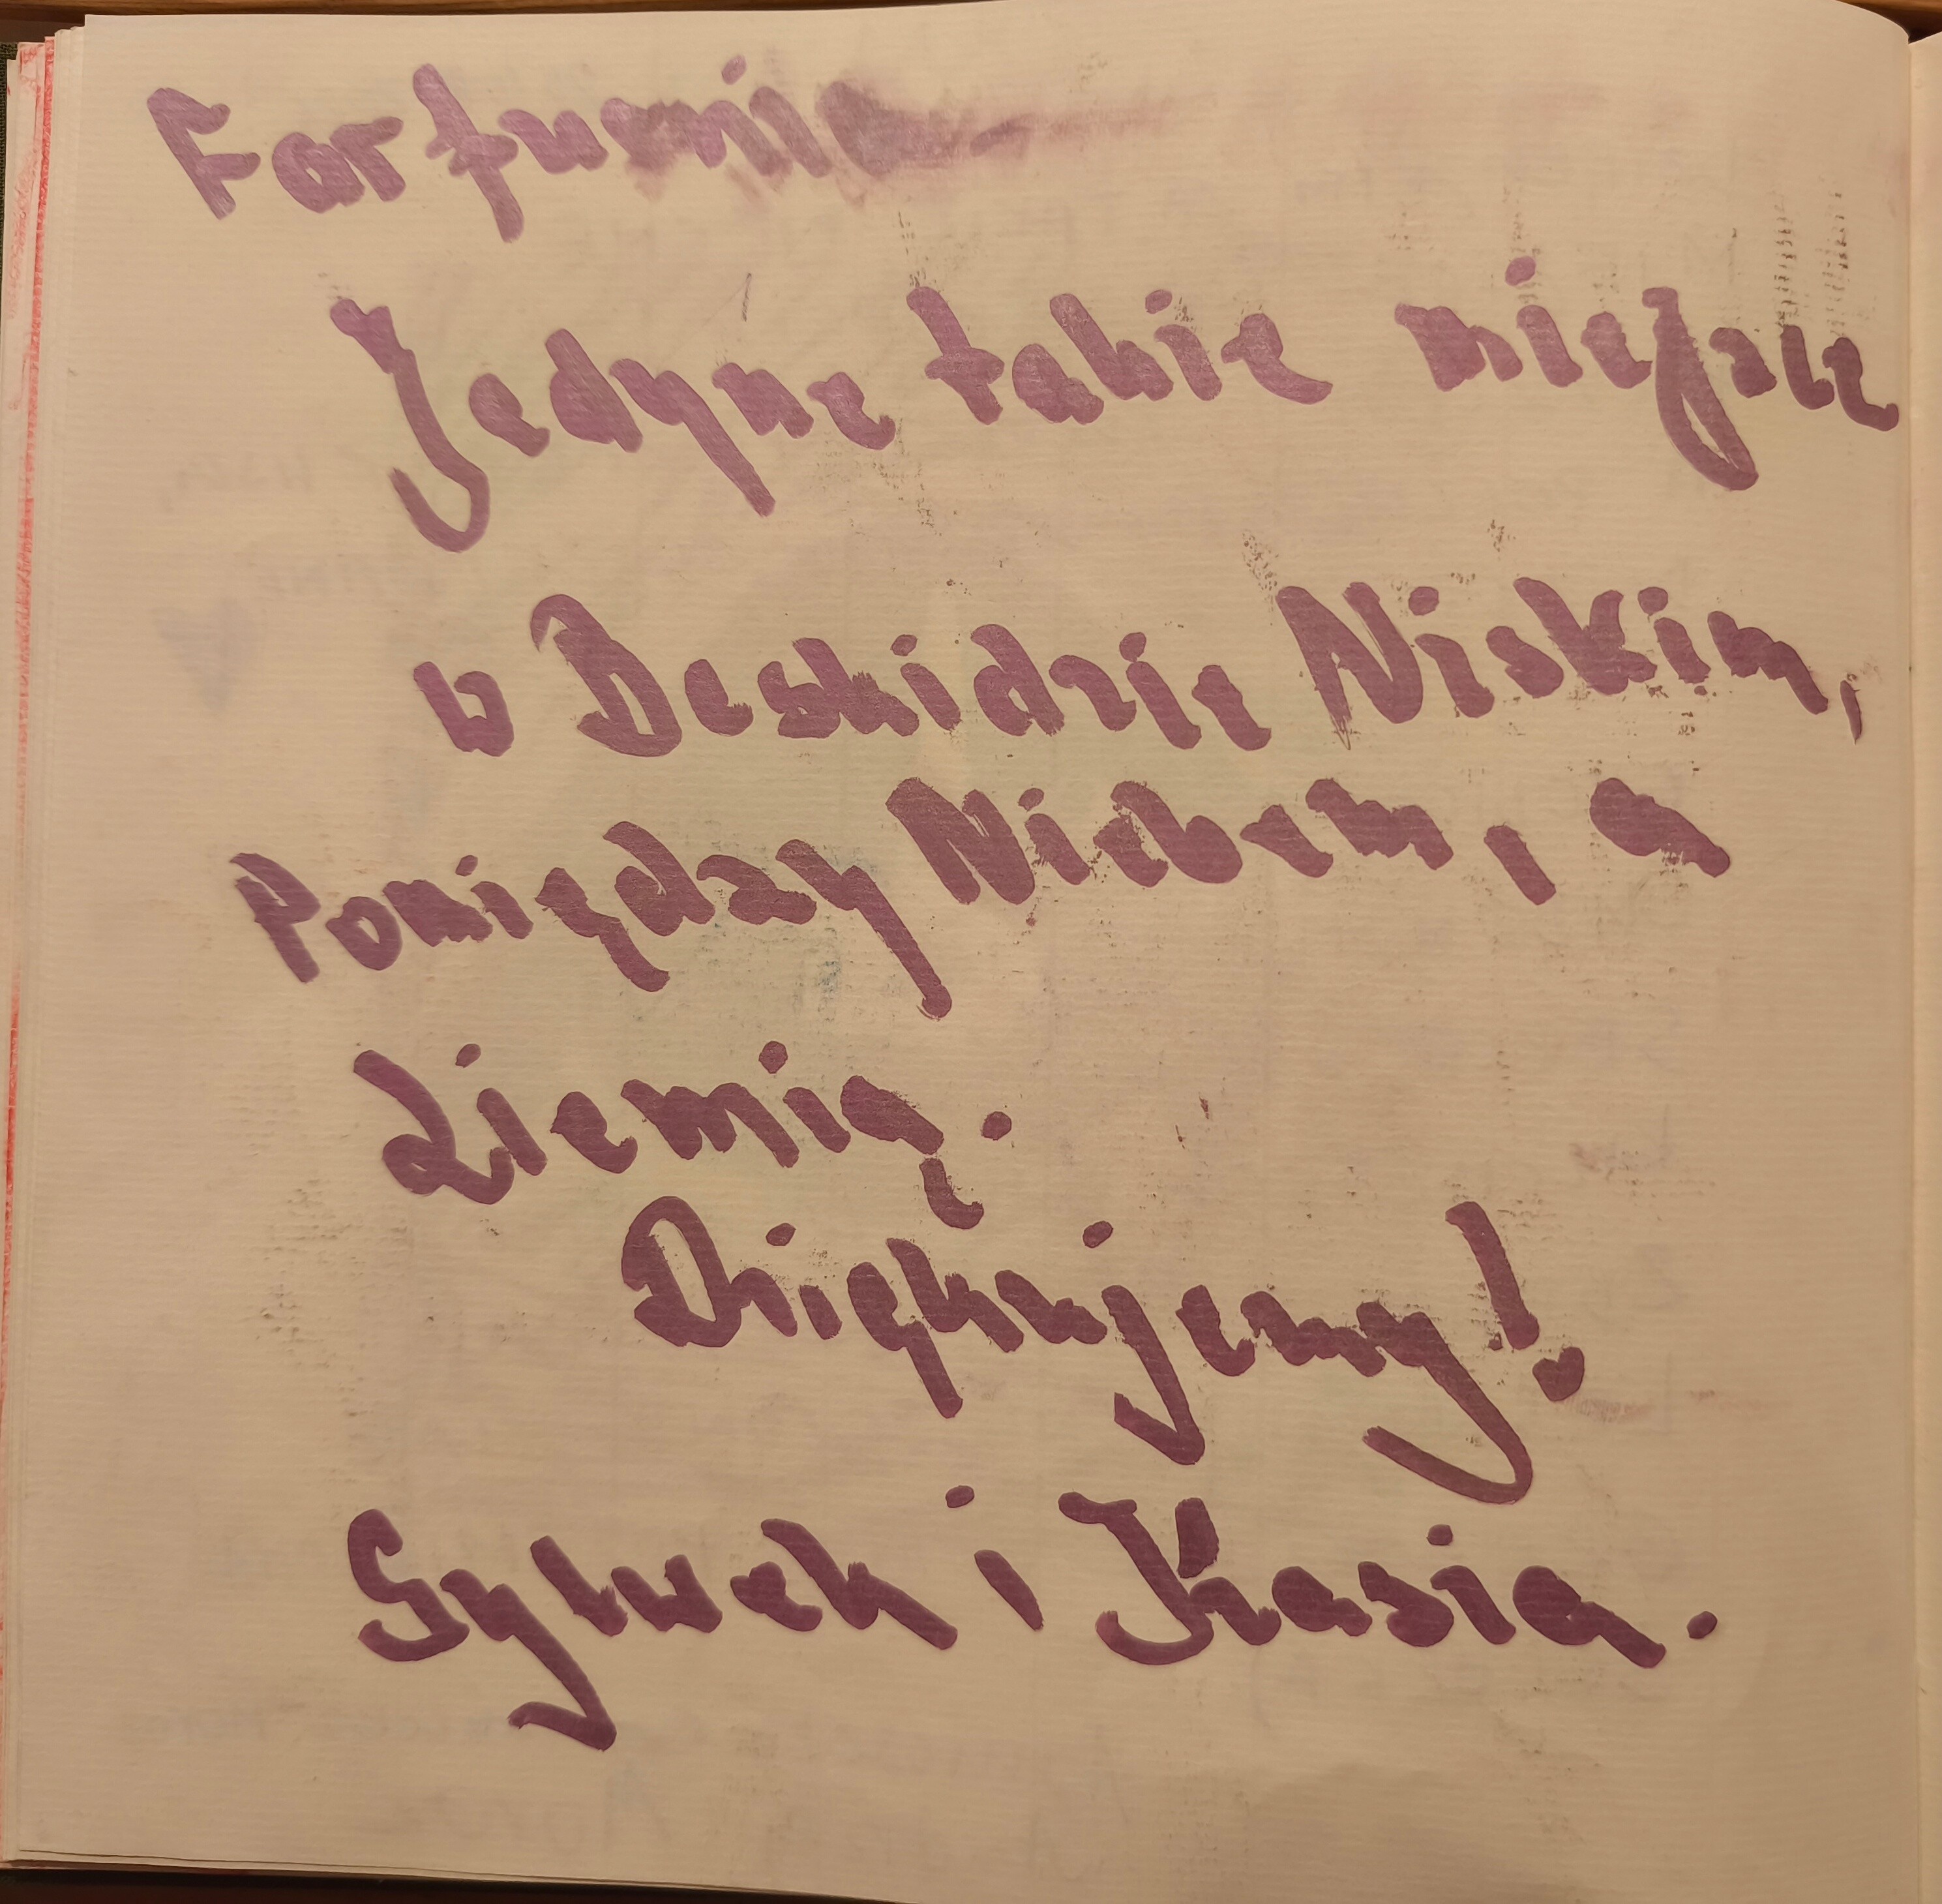 Farfurnia
Jedyne takie miejsce
w Beskidzie Niskim,
Pomiędzy Niebem, a
Ziemią.
Dziękujemy!
Sylwek i Kasia.